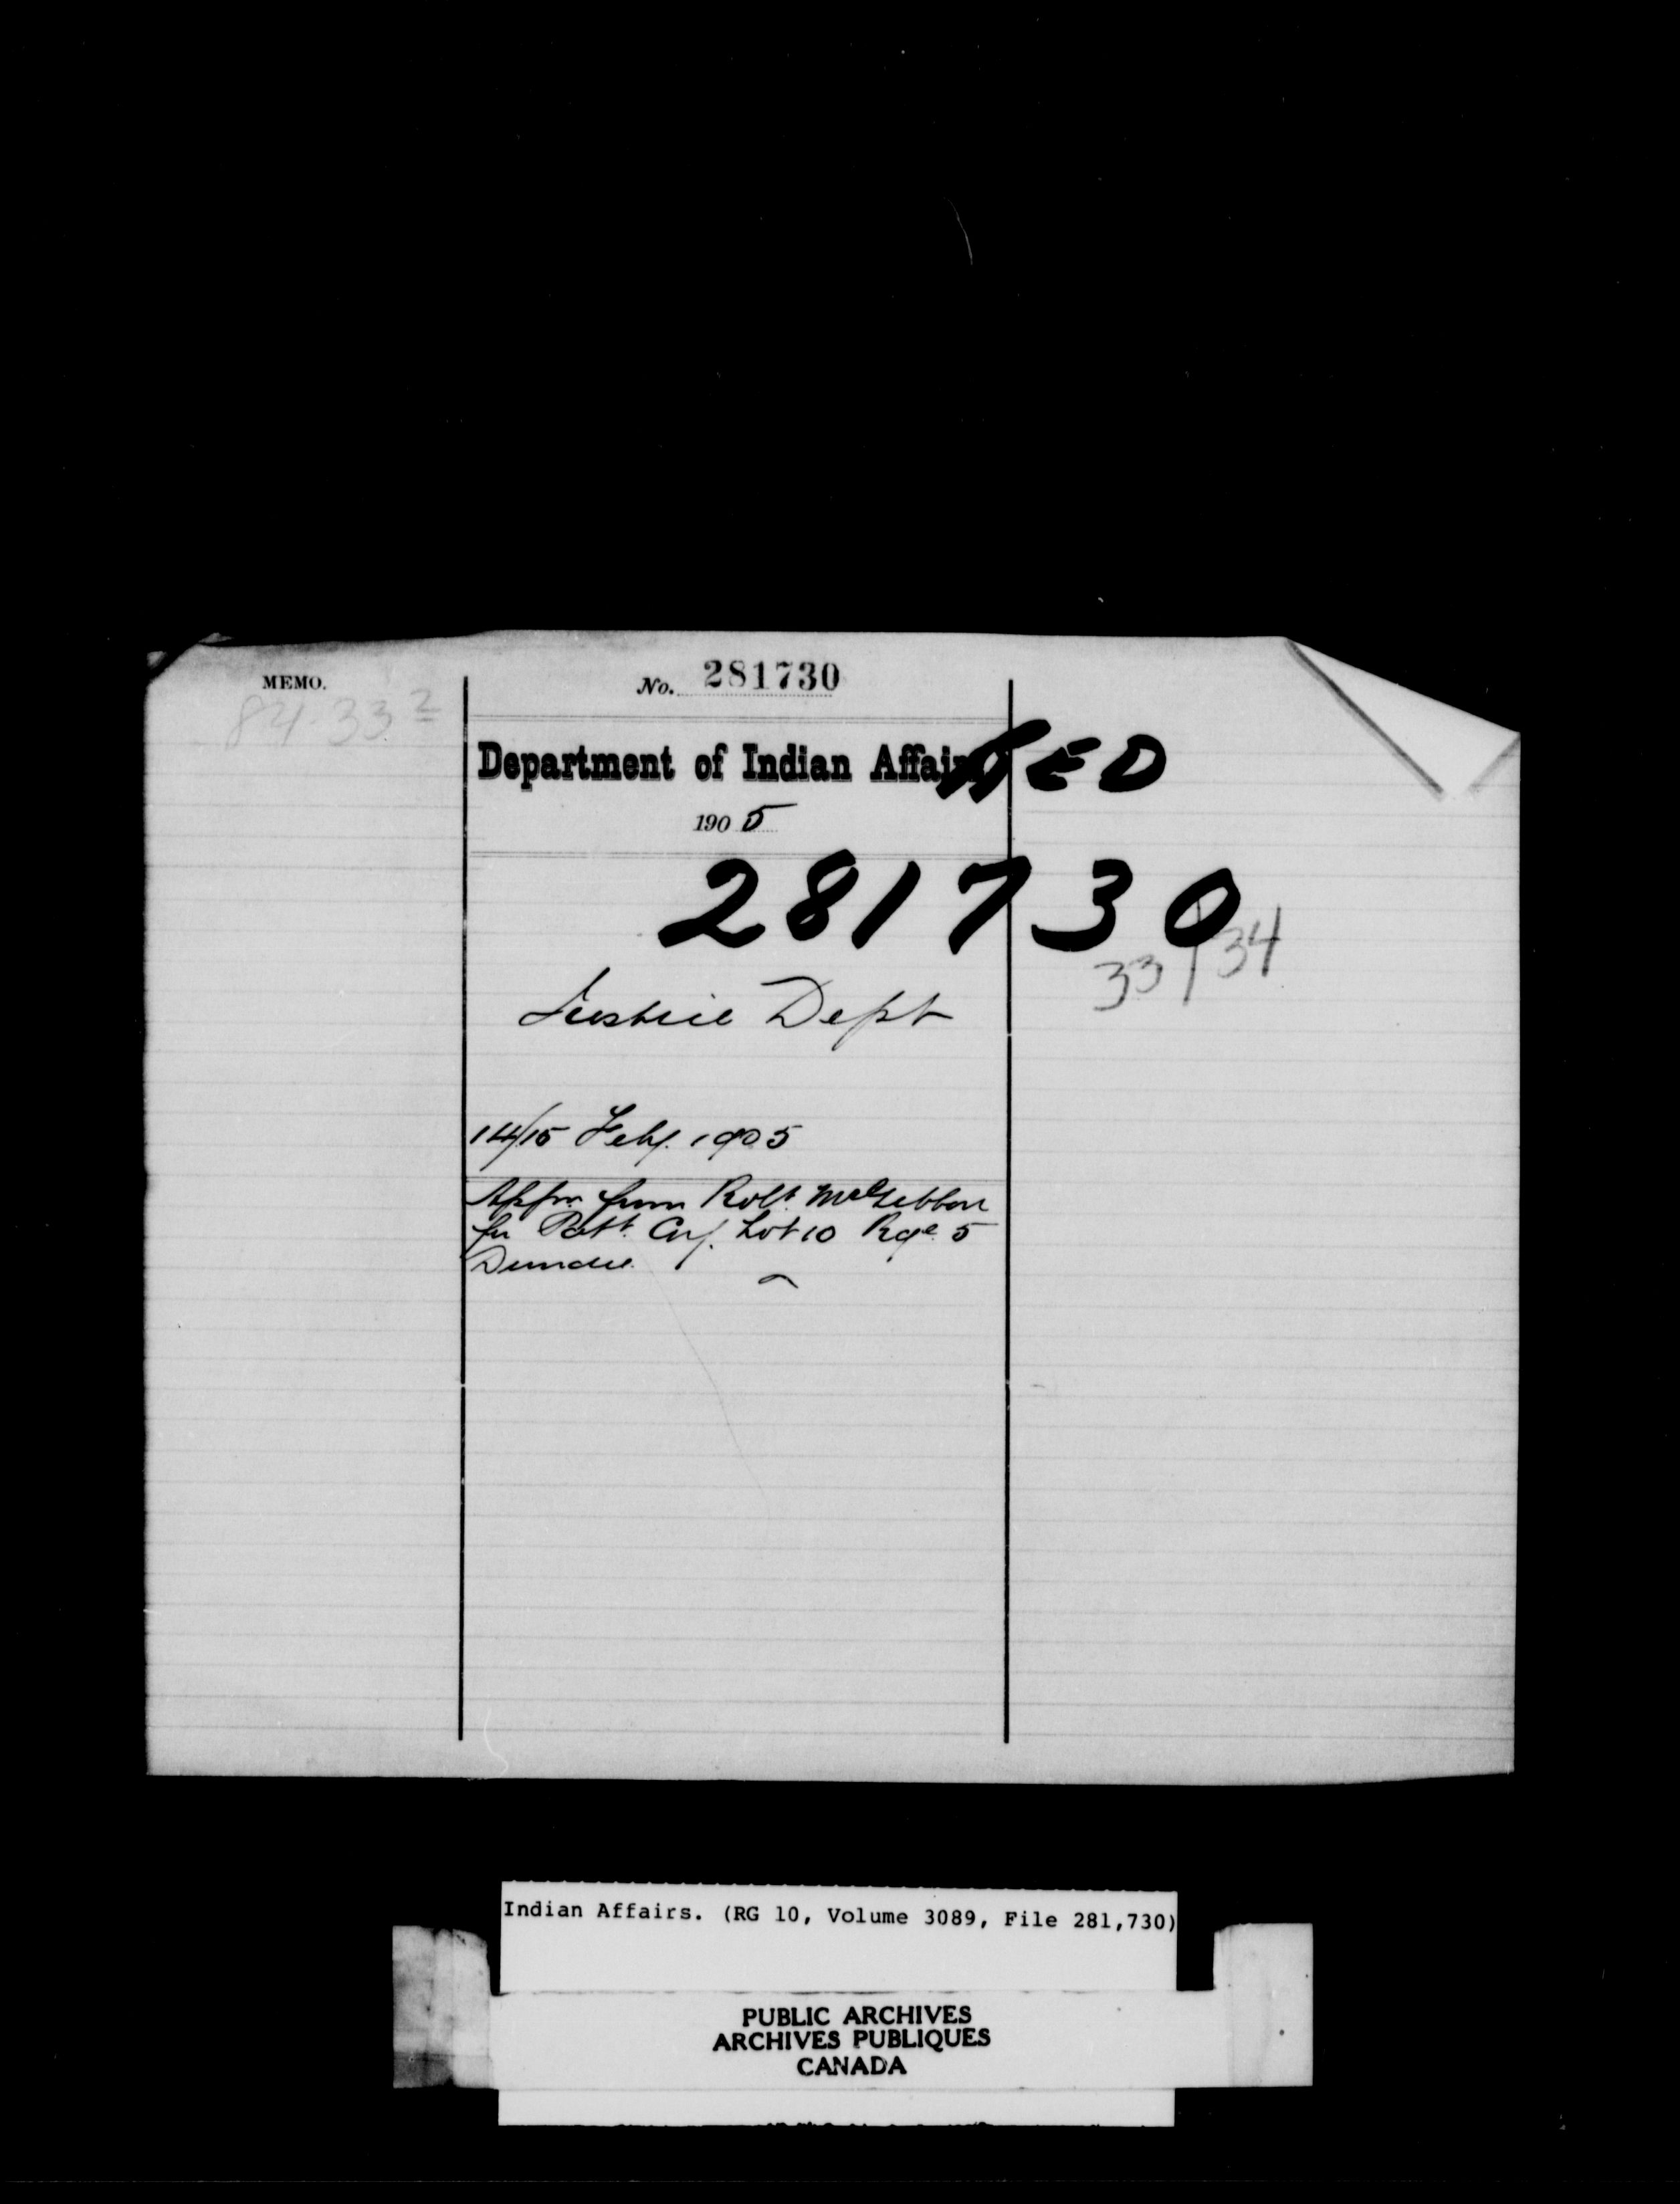 MEMO.
84-33 2
No. 281730
Department of Indian Affairs
RED
1905
281730
33/34
Justice Dept
14/15 Feby. 1905
Appn. from Robt. McGibbon
for Patt. Cov. Lot 10 Rge. 5
Dundee
Indian Affairs. (RG 10, Volume 3089, File 281,730)
PUBLIC ARCHIVES
ARCHIVES PUBLIQUES
CANADA